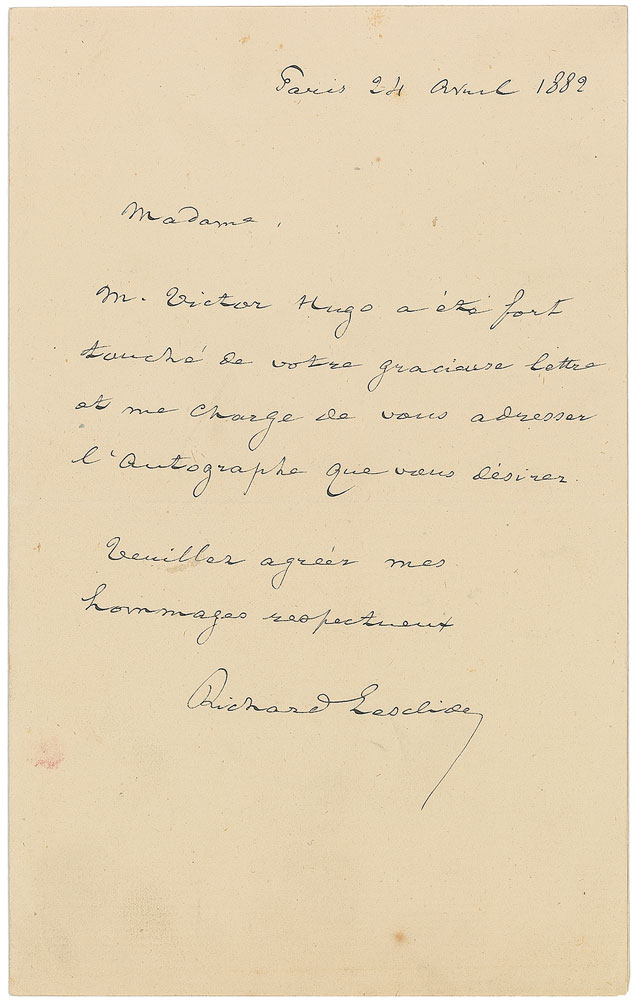 Paris 24 Avril 1882
Madame,
M. Victor Hugo a été fort
touché de votre gracieuse lettre
et me charge de vous adresser
l'Autographe que vous désirez.
Veuillez agréer mes
hommages respectueux
Richard Lesclide